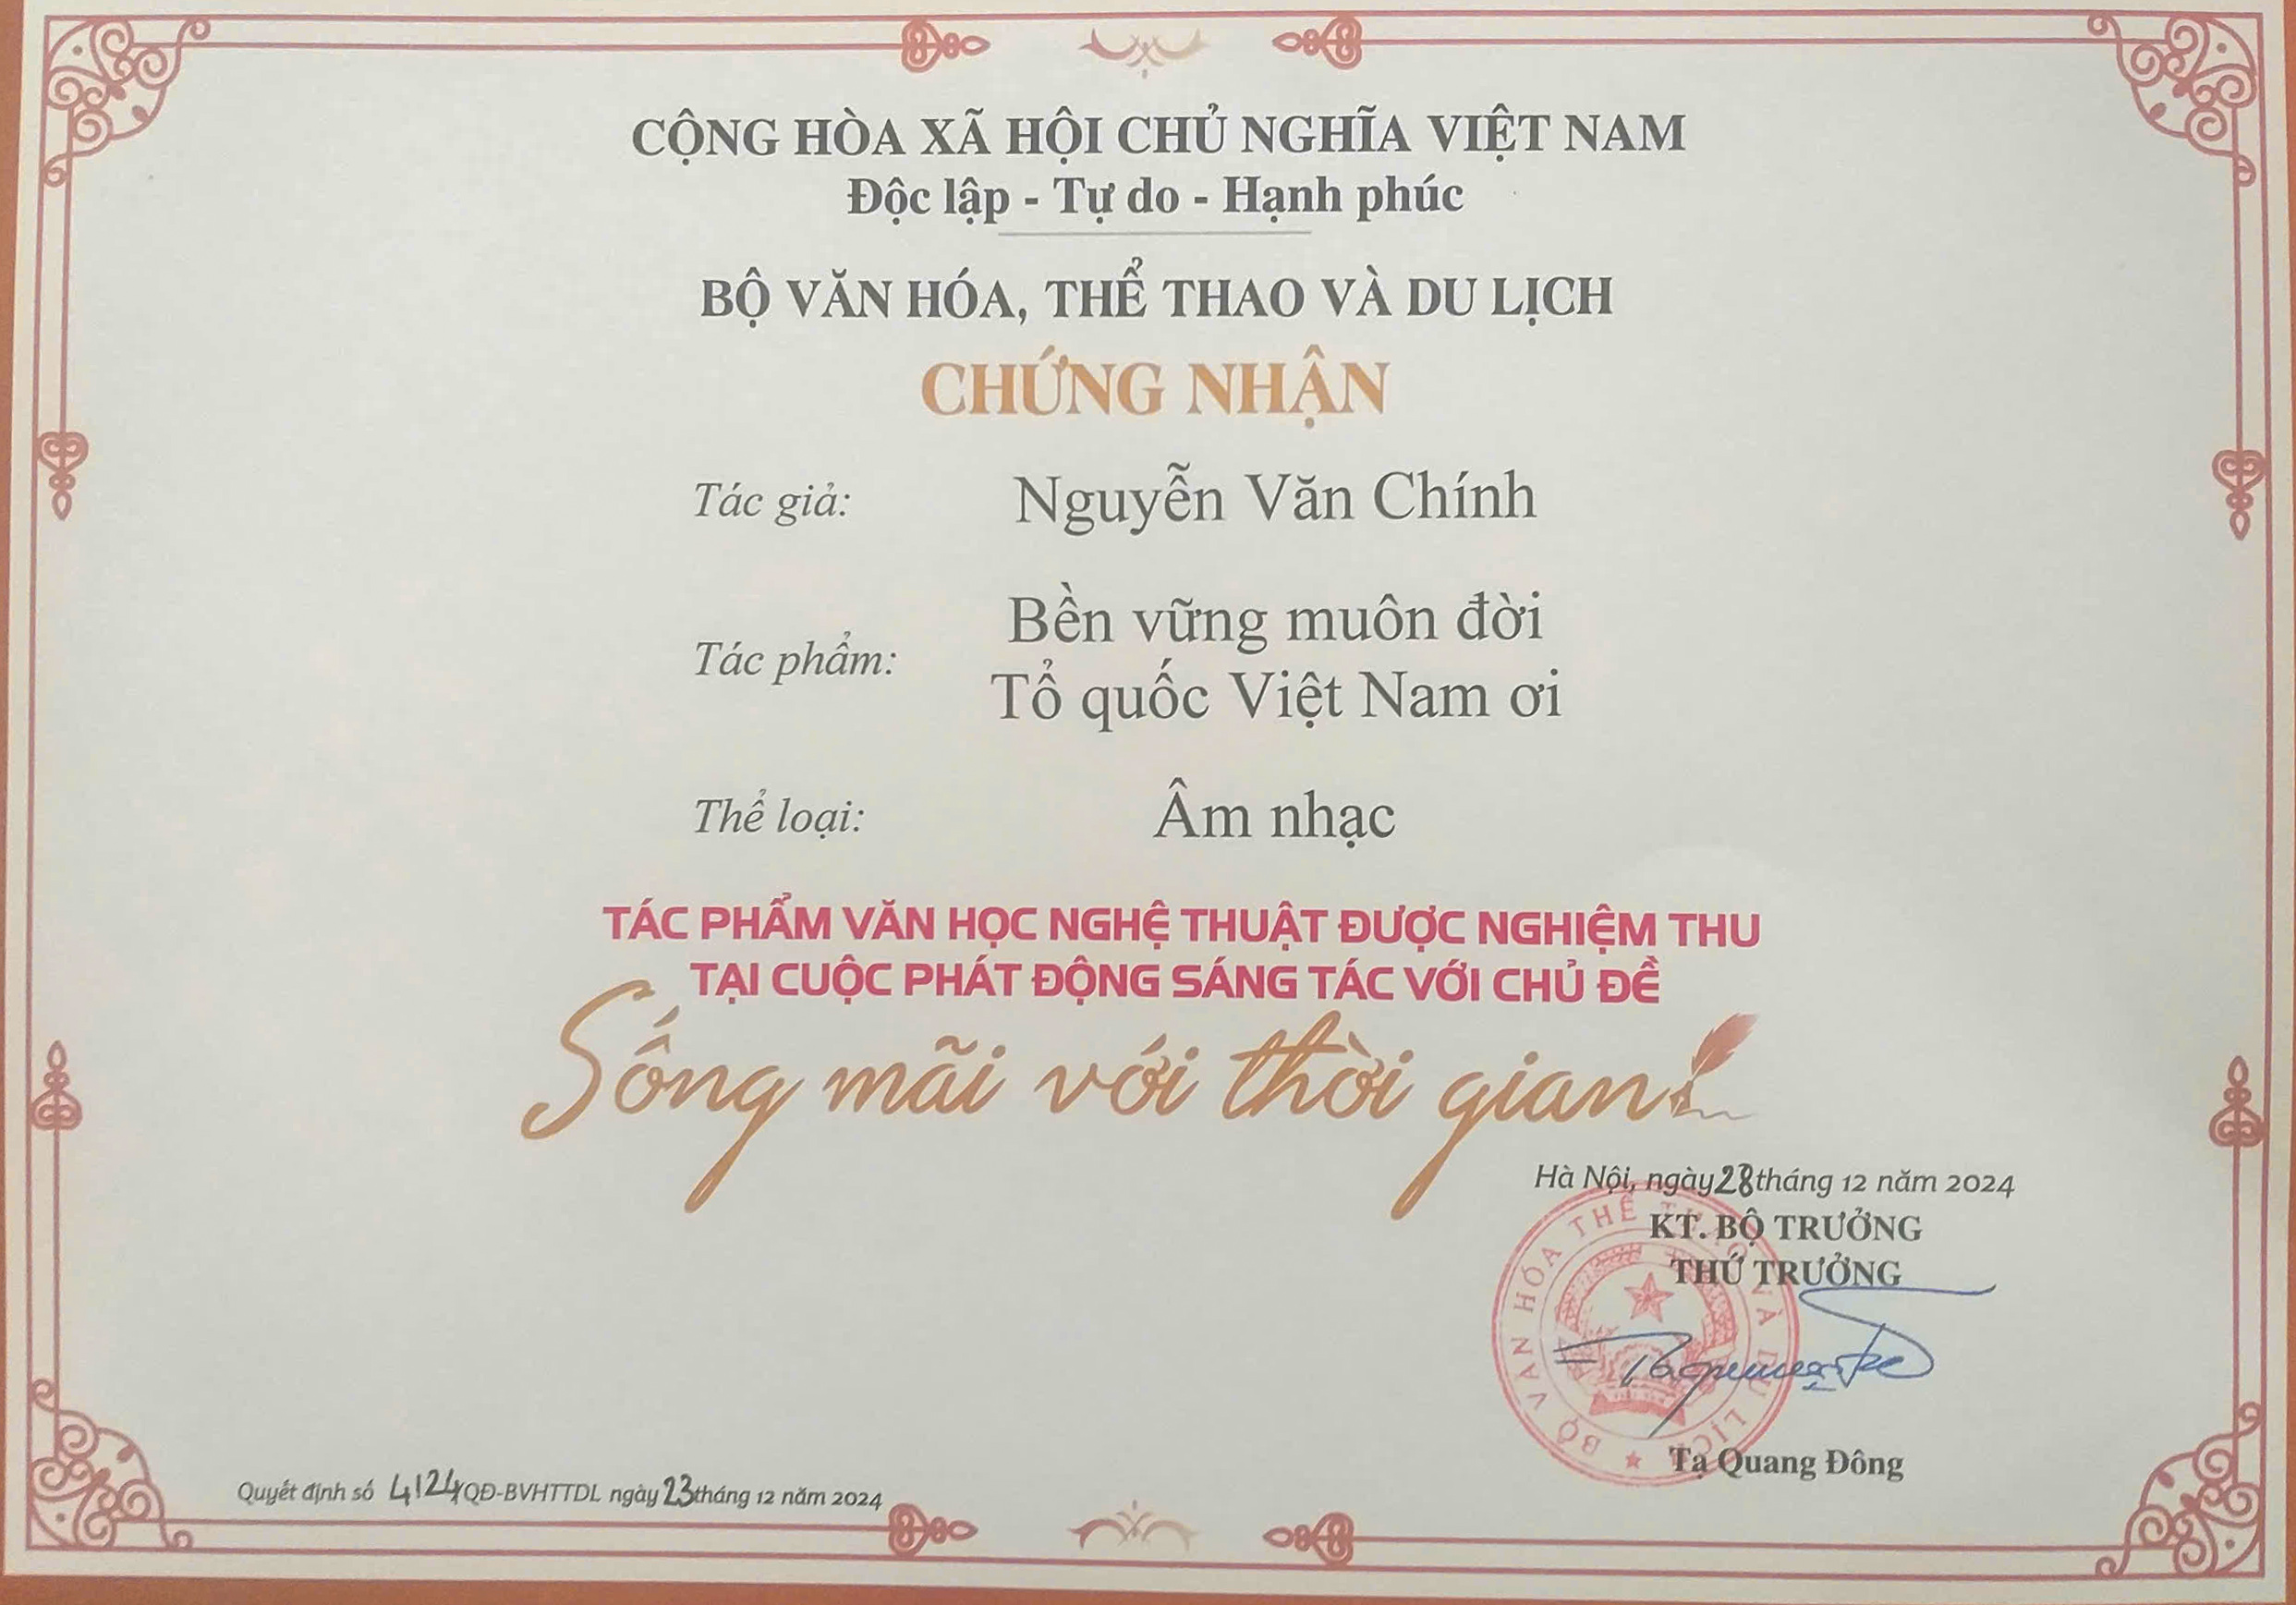 CỘNG HÒA XÃ HỘI CHỦ NGHĨA VIỆT NAM
Độc lập - Tự do - Hạnh phúc
BỘ VĂN HÓA, THỂ THAO VÀ DU LỊCH
CHỨNG NHẬN
Tác giả: Nguyễn Văn Chính
Tác phẩm: Bền vững muôn đời
Tổ quốc Việt Nam ơi
Thể loại: Âm nhạc
TÁC PHẨM VĂN HỌC NGHỆ THUẬT ĐƯỢC NGHIỆM THU
TẠI CUỘC PHÁT ĐỘNG SÁNG TÁC VỚI CHỦ ĐỀ
Sống mãi với thời gian
Hà Nội, ngày 28 tháng 12 năm 2024
KT. BỘ TRƯỞNG
THỨ TRƯỞNG
BỘ VĂN HÓA THỂ THAO VÀ DU LỊCH
Tạ Quang Đông
Quyết định số 4124/QĐ-BVHTTDL ngày 23 tháng 12 năm 2024